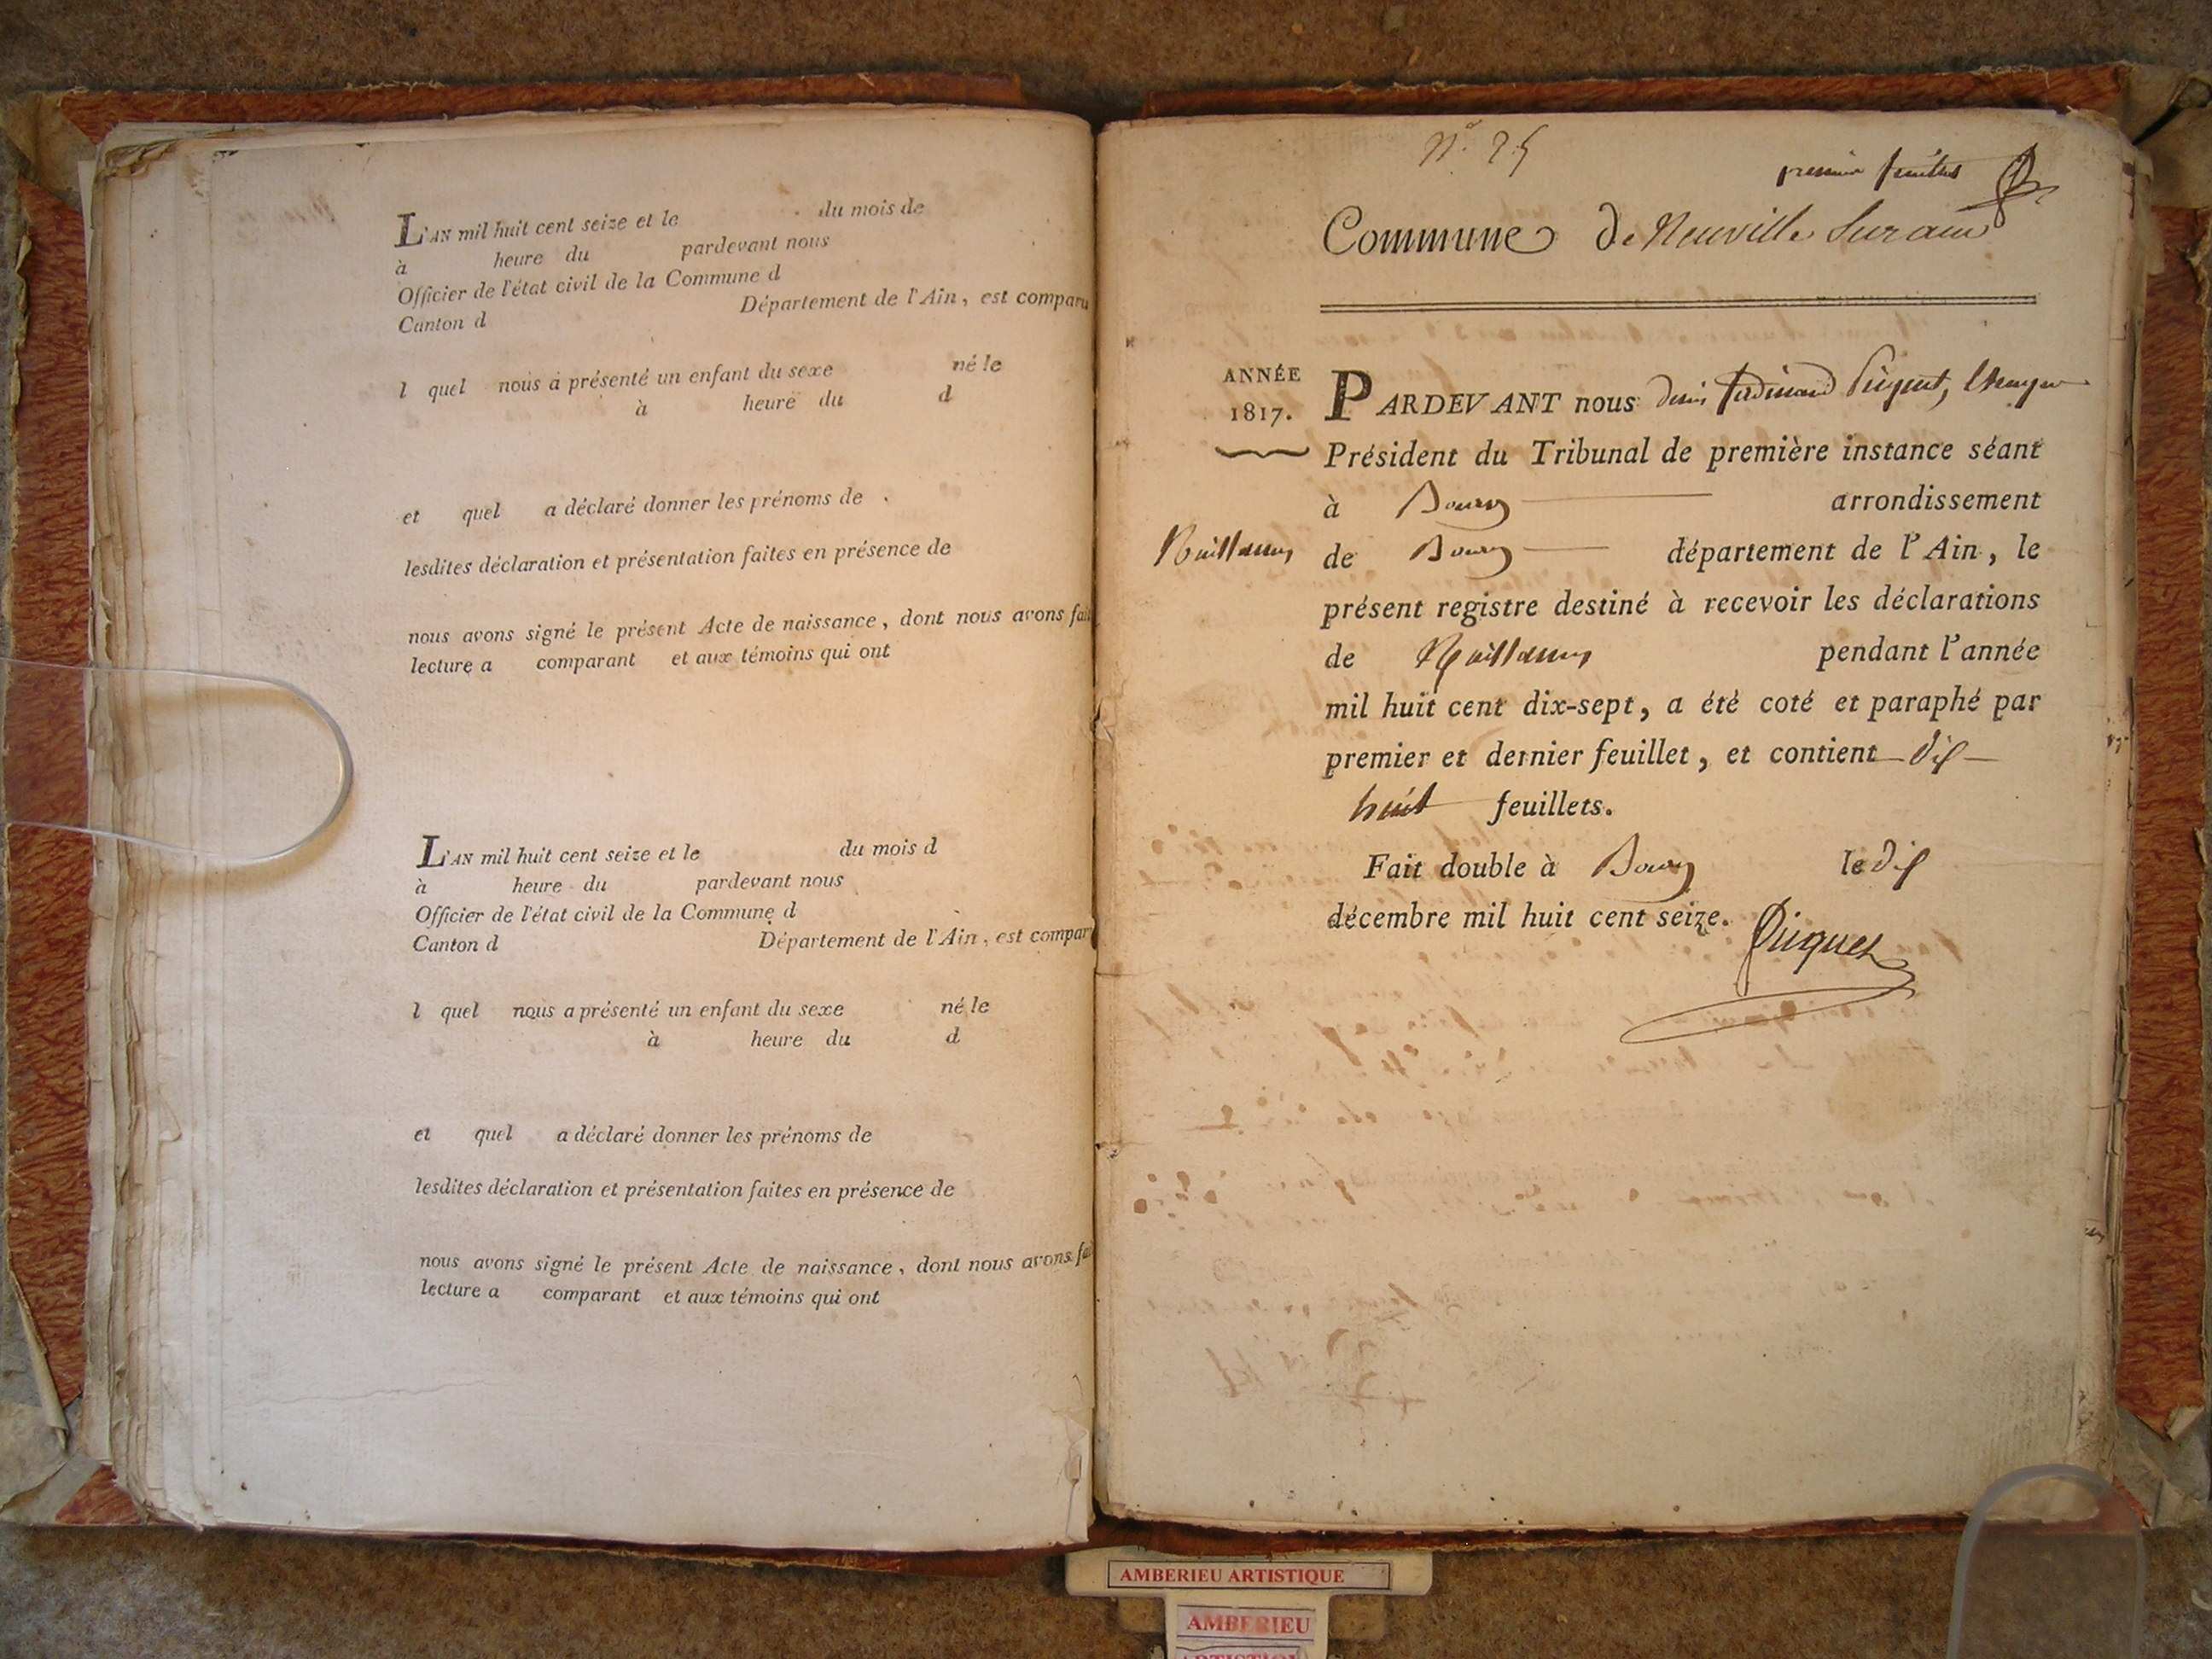 L'AN mil huit cent seize et le du mois de
à heure du pardevant nous
Officier de l'état civil de la Commune d
Canton d Département de l'Ain, est comparu
l quel nous a présenté un enfant du sexe né le
à heure du d
et quel a déclaré donner les prénoms de
lesdites déclaration et présentation faites en présence de
nous avons signé le présent Acte de naissance, dont nous avons fait
lecture a comparant et aux témoins qui ont
L'AN mil huit cent seize et le du mois d
à heure du pardevant nous
Officier de l'état civil de la Commune d
Canton d Département de l'Ain, est compar
l quel nous a présenté un enfant du sexe né le
à heure du d
et quel a déclaré donner les prénoms de
lesdites déclaration et présentation faites en présence de
nous avons signé le présent Acte de naissance, dont nous avons fai
lecture a comparant et aux témoins qui ont
N.o 25
premier feuillet
Commune de Neuville Sur ain
ANNÉE
1817.
PARDEVANT nous denis ferdinand Piquet,
Président du Tribunal de première instance séant
à Bourg arrondissement
Naissances
de Bourg département de l'Ain, le
présent registre destiné à recevoir les déclarations
de Naissances pendant l'année
mil huit cent dix-sept, a été coté et paraphé par
premier et dernier feuillet, et contient dix
huit feuillets.
Fait double à Bourg le dix
décembre mil huit cent seize.
Piquet
AMBERIEU ARTISTIQUE
AMBERIEU
ARTISTIQU